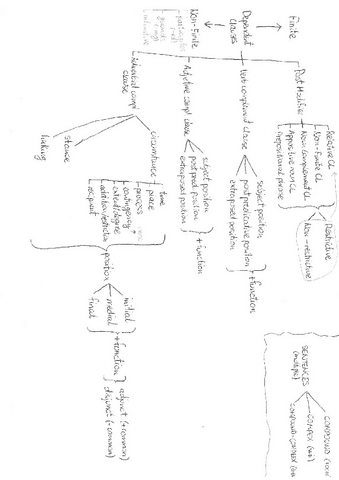 Finite
Dependent
Clauses
Non-Finite
participle
infinitive
Post Modifier
Relative CL
Non-Finite CL
Noun Complement CL
Appositive noun CL
Prepositional phrase
Restrictive
Non-restrictive
Verb complement Clause
subject position
post predicative position
extraposed position
+function
Adjective compl clause
subject position
post pred position
extraposed position
+function
Adverbial compl
clause
circumstance
stance
linking
time
place
process
contingency
extent/degree
addition/restriction
recipient
position
initial
medial
final
+function
adjunct (+common)
disjunct (+common)
SENTENCES
(multiple)
COMPOUND
COMPLEX
COMPOUND-COMPLEX